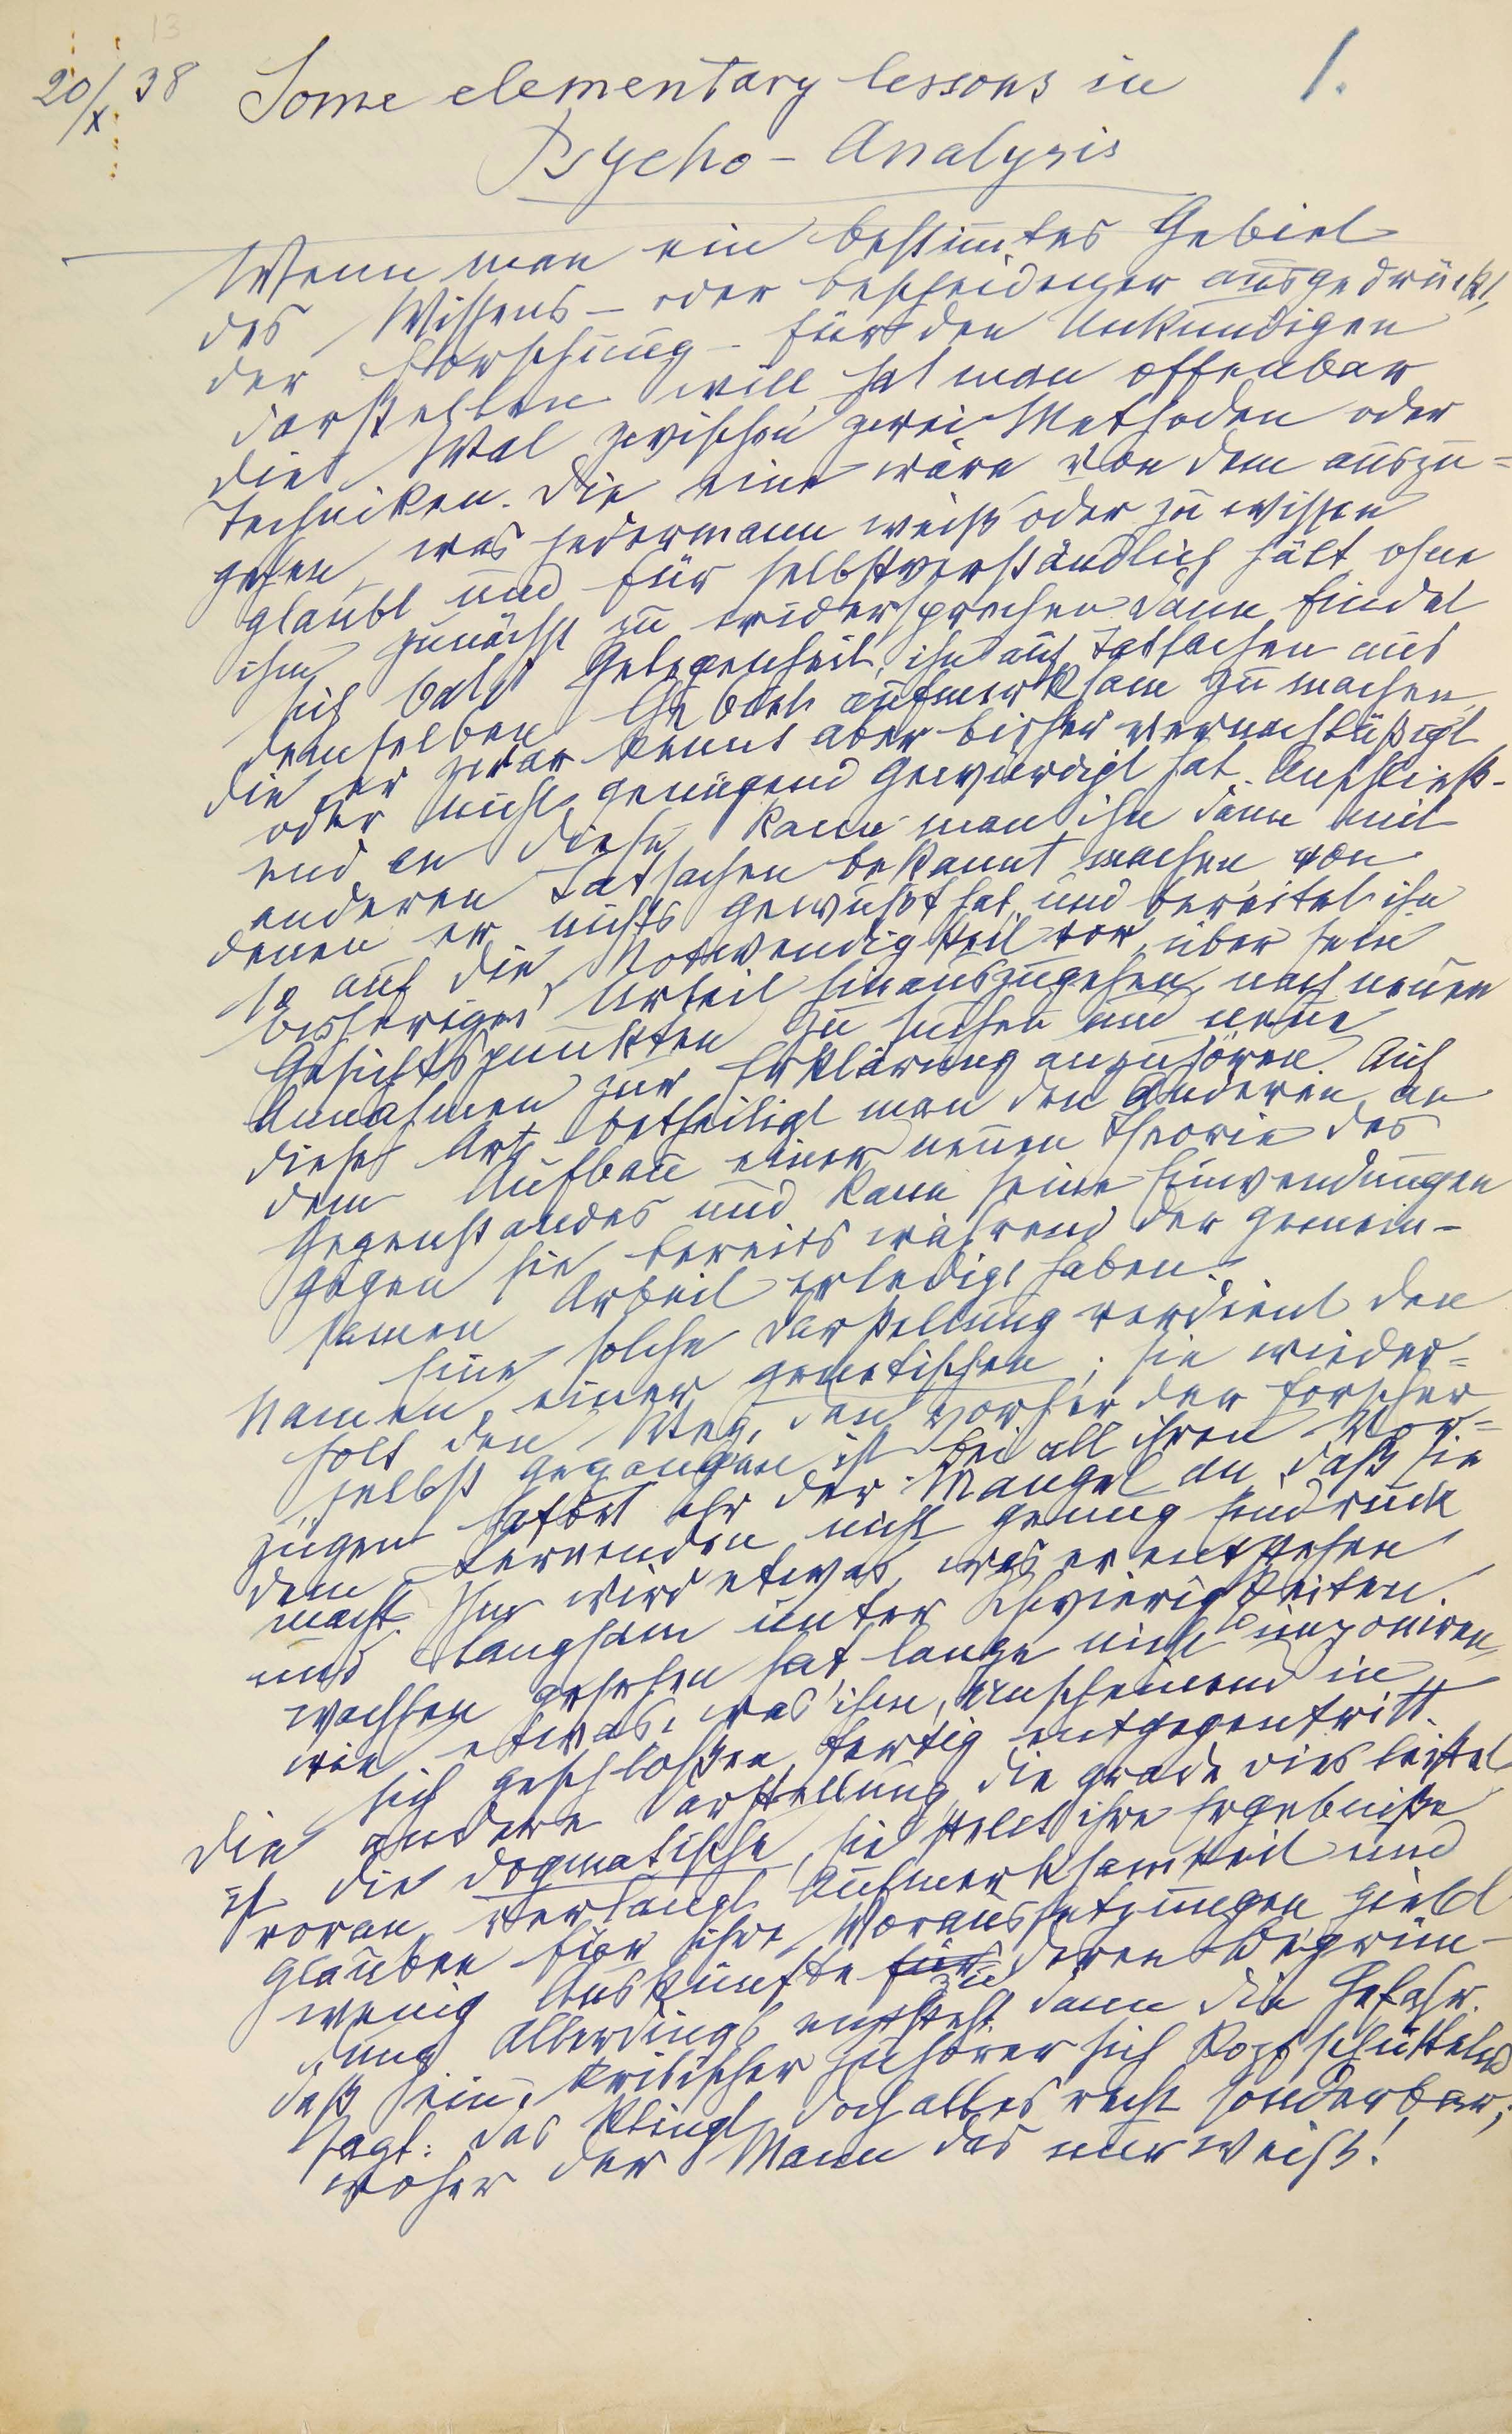 13
20/X 38 Some elementary lessons in 1.
Psycho-Analysis
Wenn man ein bestimmtes Gebiet
des Wissens – oder bescheidener ausgedrückt,
der Forschung – für den Unkundigen
darstellen will, hat man offenbar
die Wal zwischen zwei Methoden oder
Techniken. Die eine wäre von dem auszu=
gehen, was jedermann weiß oder zu wissen
glaubt und für selbstverständlich hält, ohne
ihm zunächst zu widersprechen. Dann findet
sich bald Gelegenheit, ihn auf Tatsachen aus
demselben Gebiet aufmerksam zu machen,
die er zwar kennt aber bisher vernachläßigt
oder nicht genügend gewürdigt hat. Anschließ-
end an diese kann man ihn dann mit
anderen Tatsachen bekannt machen von
denen er nichts gewußt hat, und bereitet ihn
so auf die Notwendigkeit vor, über sein
bisheriges Urteil hinauszugehen, nach neuen
Gesichtspunkten zu suchen und neue
Annahmen zur Erklärung anzuhören. Auf
diese Art betheiligt man den Anderen an
dem Aufbau einer neuen Theorie des
Gegenstandes und kann seine Einwendungen
gegen sie bereits während der gemein-
samen Arbeit erledigt haben.
Eine solche Darstellung verdient den
Namen einer genetischen; sie wieder=
holt den Weg, den vorher der Forscher
selbst gegangen ist. Bei all ihren Vor=
zügen haftet ihr der Mangel an, daß sie
dem Lernenden nicht genug Eindruck
macht. Ihm wird etwas, was er entstehen
und langsam unter Schwierigkeiten
wachsen gesehen hat lange nicht so imponiren,
wie etwas, was ihm, anscheinend in
sich geschloßen, fertig entgegentritt.
Die andere Darstellung, die grade dies leistet
ist die dogmatische, sie stellt ihre Ergebniße
voran, verlangt Aufmerksamkeit und
Glauben für ihre Voraussetzungen, giebt
wenig Auskünfte für zu deren Begrün-
dung. Allerdings entsteht dann die Gefahr,
daß ein kritischer Zuhörer sich kopfschüttelnd
sagt: das klingt doch alles recht sonderbar;
woher der Mann das nur weiß!